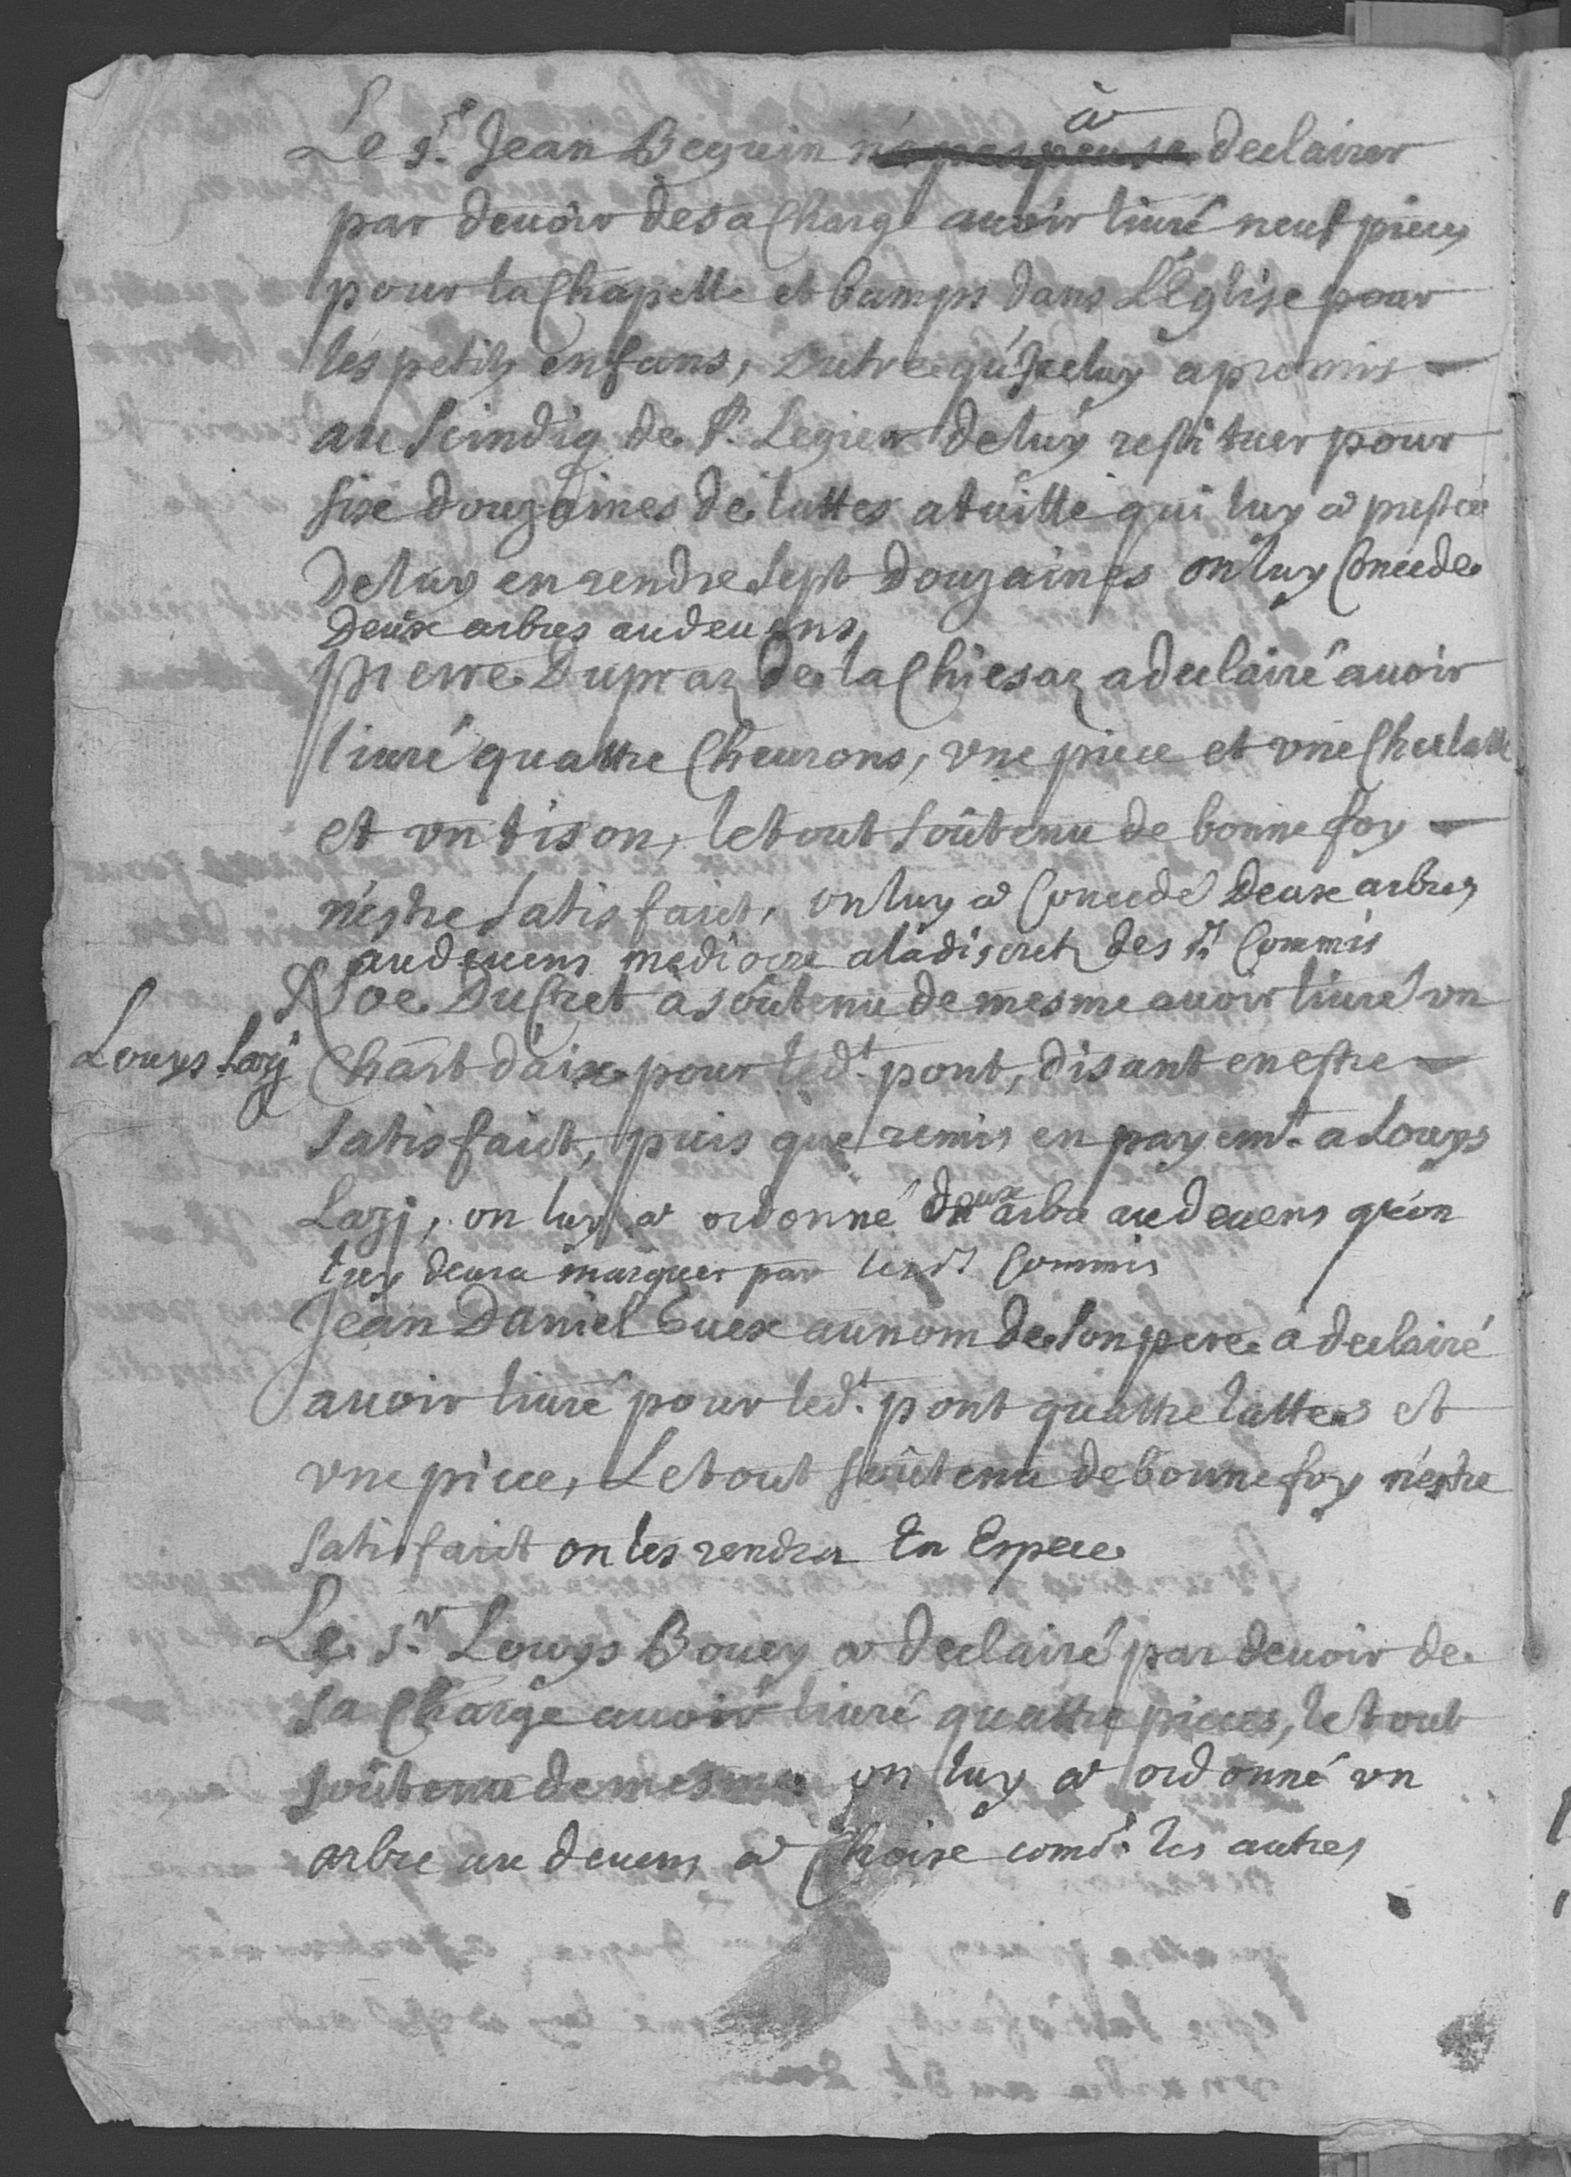 à
Le Sr. Jean Beguin declairer
par deuoir de sa Charge auoir liuré neuf pieces
pour la Chapelle et bamps dans L'Eglise pour
les petits enfans, outre qu'Jceluy a promis
au Scindiq de St. Legier de luy restituer pour
sixe douzaines de lattes a tuille qui luy à prestée
de luy en rendre sept douzaines on luy Concede
Deux arbres au deuens
Pierre Dupraz de la Chiesaz a declairé auoir
liuré quattre Cheurons, vne piece et vne Cherlatte
et vn tison, le tout soûtenu de bonne foy
n'estre satisfaict, on luy à Concedé Deux arbres
au deuens mediocre a la discret des Srs Commis
Noe DuCret à soûtenu de mesme auoir liuré vn
Louys Lazj
Chart d'aix pour led.t pont, disant en estre
satisfaict, puis que remis en payem.t a Louys
Lazj, on luy à ordonné deux arbre au deuens qu'on
luy deura marquer par lesd.ts Commis
Jean Daniel Guex au nom de son pere à declairé
auoir liuré pour led.t pont quattre lattes et
vne piece, Le tout soûtenu de bonne foy n'estre
satisfaict on les rendra En Espece
Le Sr. Louys Bouey à declairé par deuoir de
sa Charge auoir liuré quattre pieces, le tout
soûtenu de mesme on luy à ordonné vn
arbre au deuens à Choixe come les autres